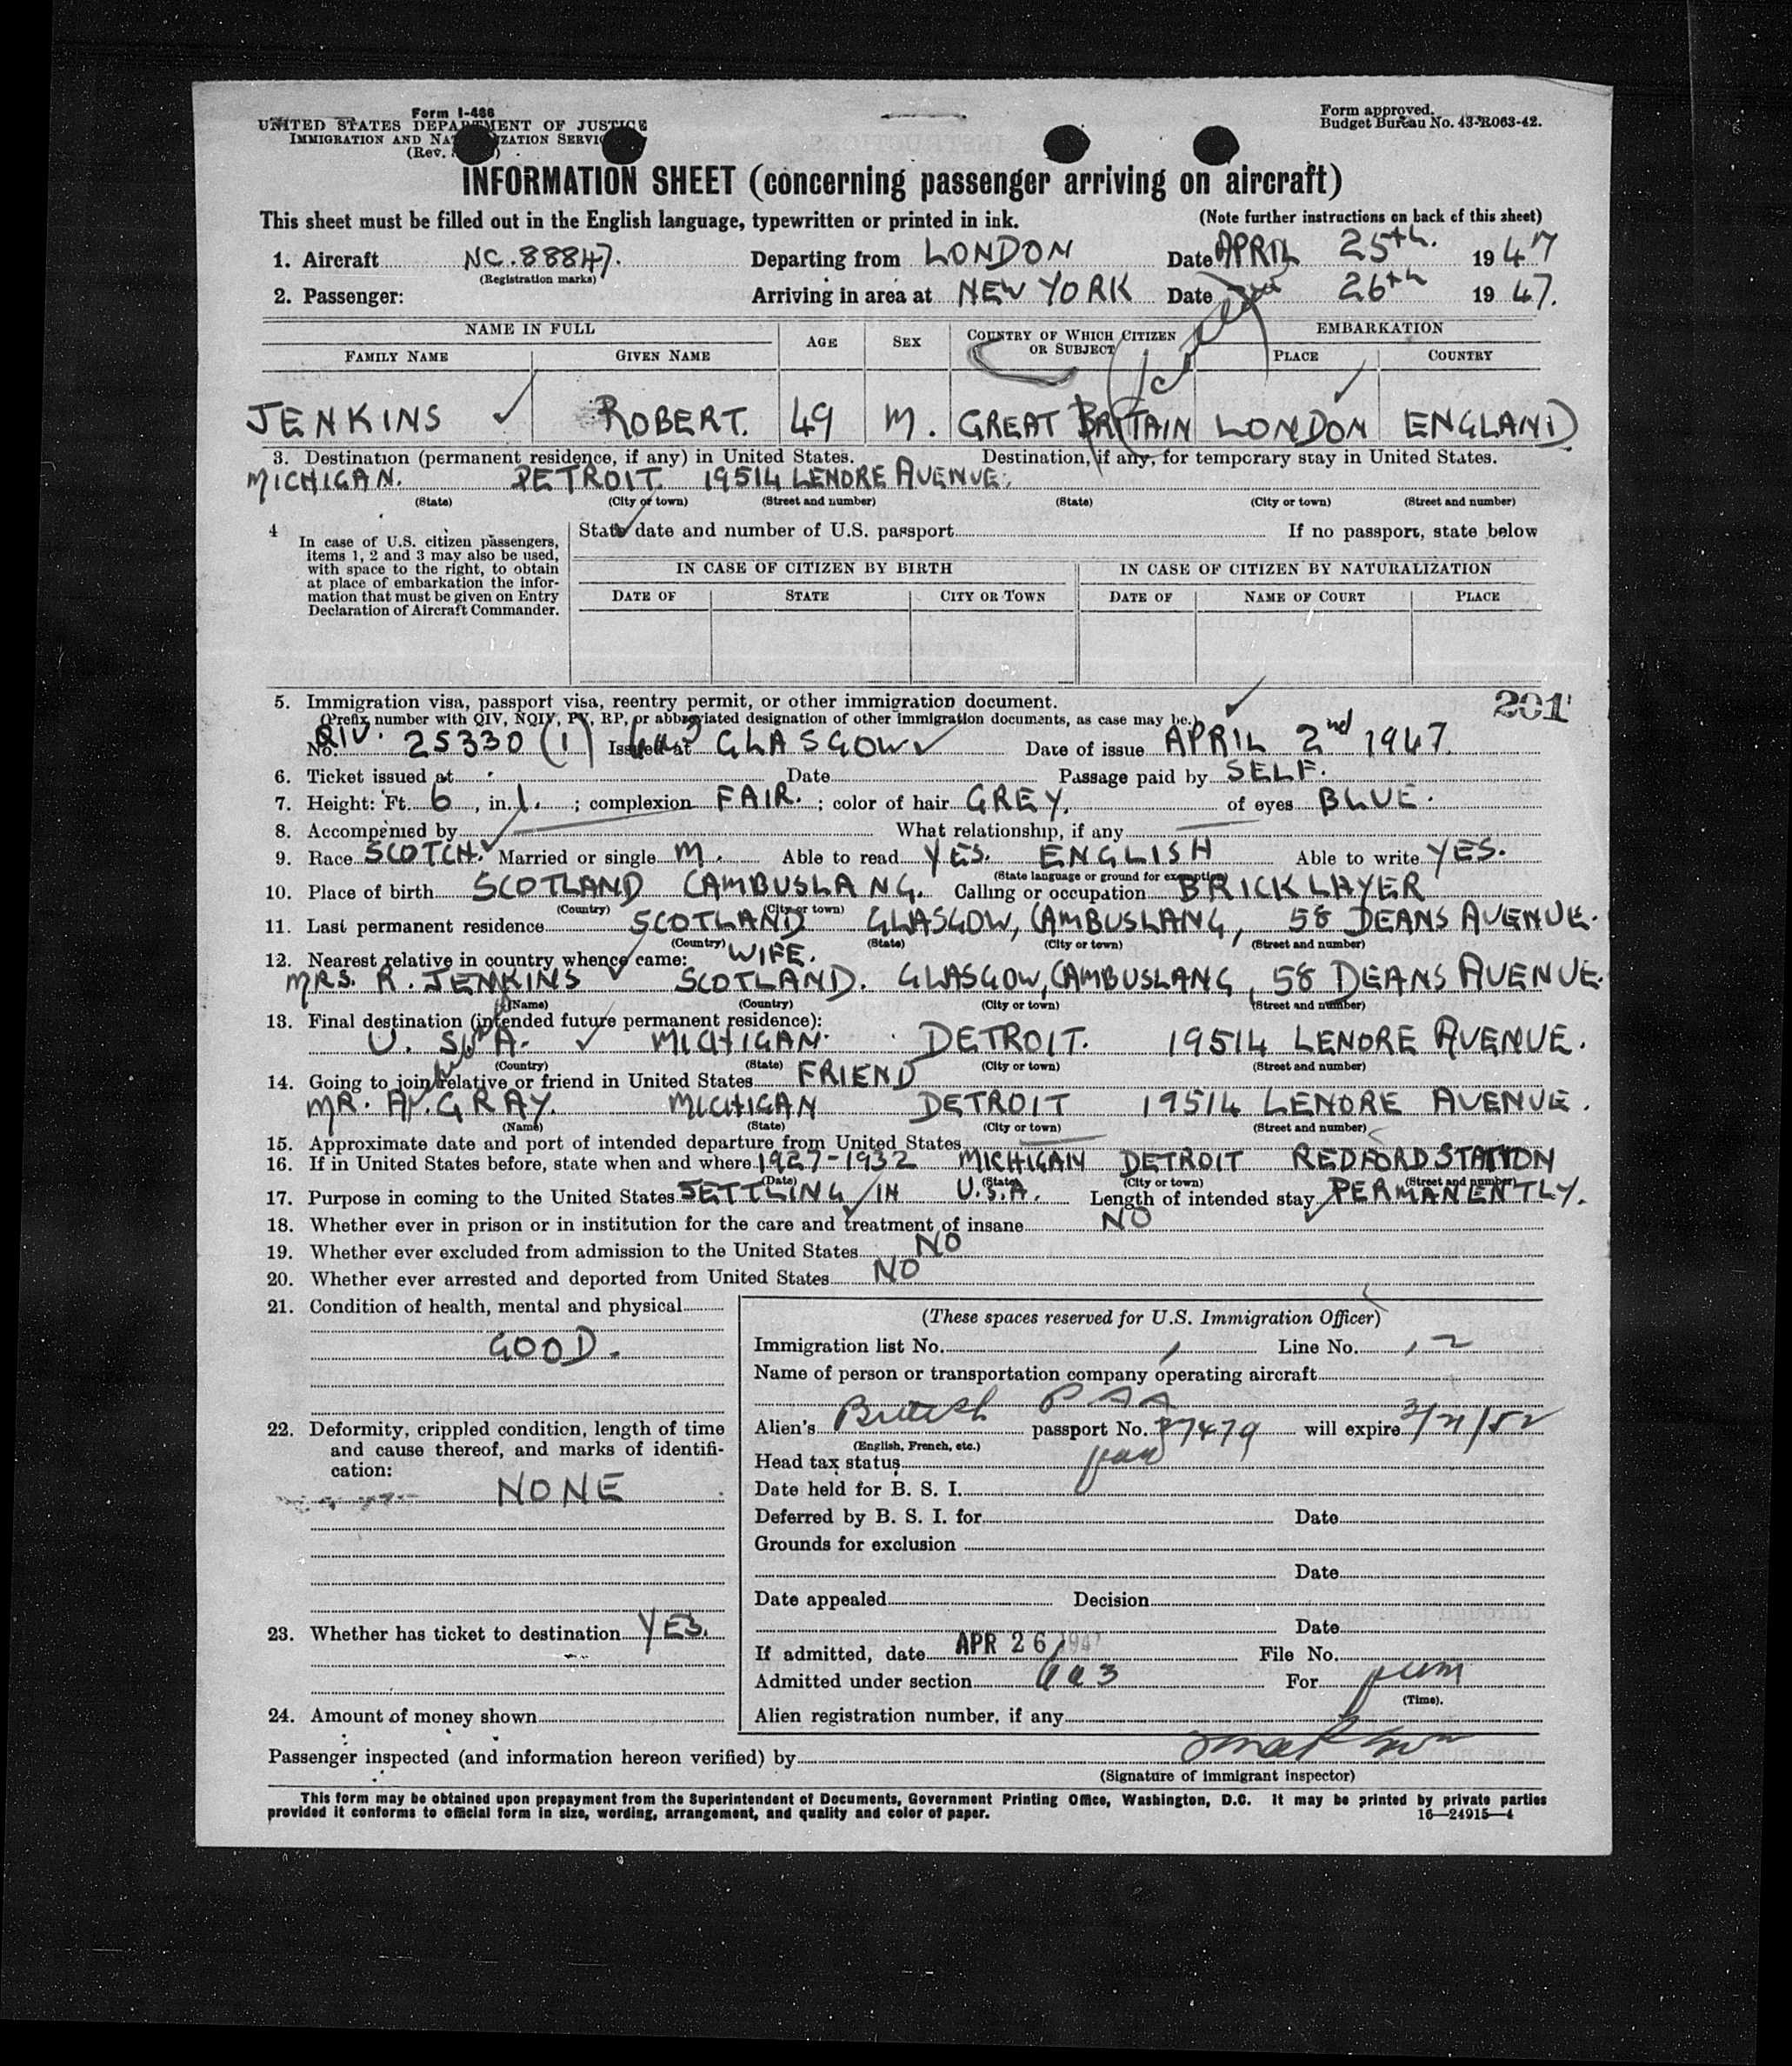 Form I-466
UNITED STATES DEPARTMENT OF JUSTICE
IMMIGRATION AND NATURALIZATION SERVICE
(Rev.
Form approved.
Budget Bureau No. 43-R063-42.
INFORMATION SHEET (concerning passenger arriving on aircraft)
This sheet must be filled out in the English language, typewritten or printed in ink. (Note further instructions on back of this sheet)
1. Aircraft NC.88847. Departing from LONDON Date APRIL 25th. 1947
(Registration marks)
2. Passenger: Arriving in area at NEW YORK Date 26th 1947.
NAME IN FULL AGE SEX COUNTRY OF WHICH CITIZEN OR SUBJECT EMBARKATION
FAMILY NAME GIVEN NAME PLACE COUNTRY
JENKINS ROBERT. 49 M. GREAT BRITAIN LONDON ENGLAND
3. Destination (permanent residence, if any) in United States. Destination, if any, for temporary stay in United States.
MICHIGAN. DETROIT. 19514 LENORE AVENUE.
(State) (City or town) (Street and number) (State) (City or town) (Street and number)
4 In case of U.S. citizen passengers, items 1, 2 and 3 may also be used, with space to the right, to obtain at place of embarkation the information that must be given on Entry Declaration of Aircraft Commander.
State date and number of U.S. passport If no passport, state below
IN CASE OF CITIZEN BY BIRTH IN CASE OF CITIZEN BY NATURALIZATION
DATE OF STATE CITY OR TOWN DATE OF NAME OF COURT PLACE
5. Immigration visa, passport visa, reentry permit, or other immigration document. 201
(Prefix number with QIV, NQIV, PV, RP, or abbreviated designation of other immigration documents, as case may be.)
No. QIV. 25330 (1) Issued at GLASGOW Date of issue APRIL 2nd 1947.
6. Ticket issued at Date Passage paid by SELF.
7. Height: Ft. 6, in. 1. ; complexion FAIR. ; color of hair GREY. of eyes BLUE.
8. Accompanied by What relationship, if any
9. Race SCOTCH. Married or single M. Able to read YES. ENGLISH Able to write YES.
(State language or ground for exemption)
10. Place of birth SCOTLAND CAMBUSLANG. Calling or occupation BRICKLAYER
(Country) (City or town)
11. Last permanent residence SCOTLAND GLASGOW, CAMBUSLANG, 58 DEANS AVENUE.
(Country) (State) (City or town) (Street and number)
12. Nearest relative in country whence came: WIFE.
MRS. R. JENKINS SCOTLAND. GLASGOW, CAMBUSLANG, 58 DEANS AVENUE.
(Name) (Country) (City or town) (Street and number)
13. Final destination (intended future permanent residence):
U. S. A. MICHIGAN. DETROIT. 19514 LENORE AVENUE.
(Country) (State) (City or town) (Street and number)
14. Going to join relative or friend in United States FRIEND
MR. A. GRAY. MICHIGAN DETROIT 19514 LENORE AVENUE.
(Name) (State) (City or town) (Street and number)
15. Approximate date and port of intended departure from United States
16. If in United States before, state when and where 1927-1932 MICHIGAN DETROIT REDFORD STATION
(Date) (State) (City or town) (Street and number)
17. Purpose in coming to the United States SETTLING IN U.S.A. Length of intended stay PERMANENTLY.
18. Whether ever in prison or in institution for the care and treatment of insane NO
19. Whether ever excluded from admission to the United States NO
20. Whether ever arrested and deported from United States NO
21. Condition of health, mental and physical
GOOD.
22. Deformity, crippled condition, length of time and cause thereof, and marks of identification:
NONE
23. Whether has ticket to destination YES.
24. Amount of money shown
(These spaces reserved for U.S. Immigration Officer)
Immigration list No. 1 Line No. 12
Name of person or transportation company operating aircraft
PAA
Alien's British passport No. 37479 will expire 3/21/52
(English, French, etc.)
Head tax status paid
Date held for B. S. I.
Deferred by B. S. I. for Date
Grounds for exclusion
Date
Date appealed Decision
Date
If admitted, date APR 26 1947 File No.
Admitted under section 6a3 For perm
(Time).
Alien registration number, if any
Passenger inspected (and information hereon verified) by
(Signature of immigrant inspector)
This form may be obtained upon prepayment from the Superintendent of Documents, Government Printing Office, Washington, D.C. It may be printed by private parties
provided it conforms to official form in size, wording, arrangement, and quality and color of paper. 16—24915-4